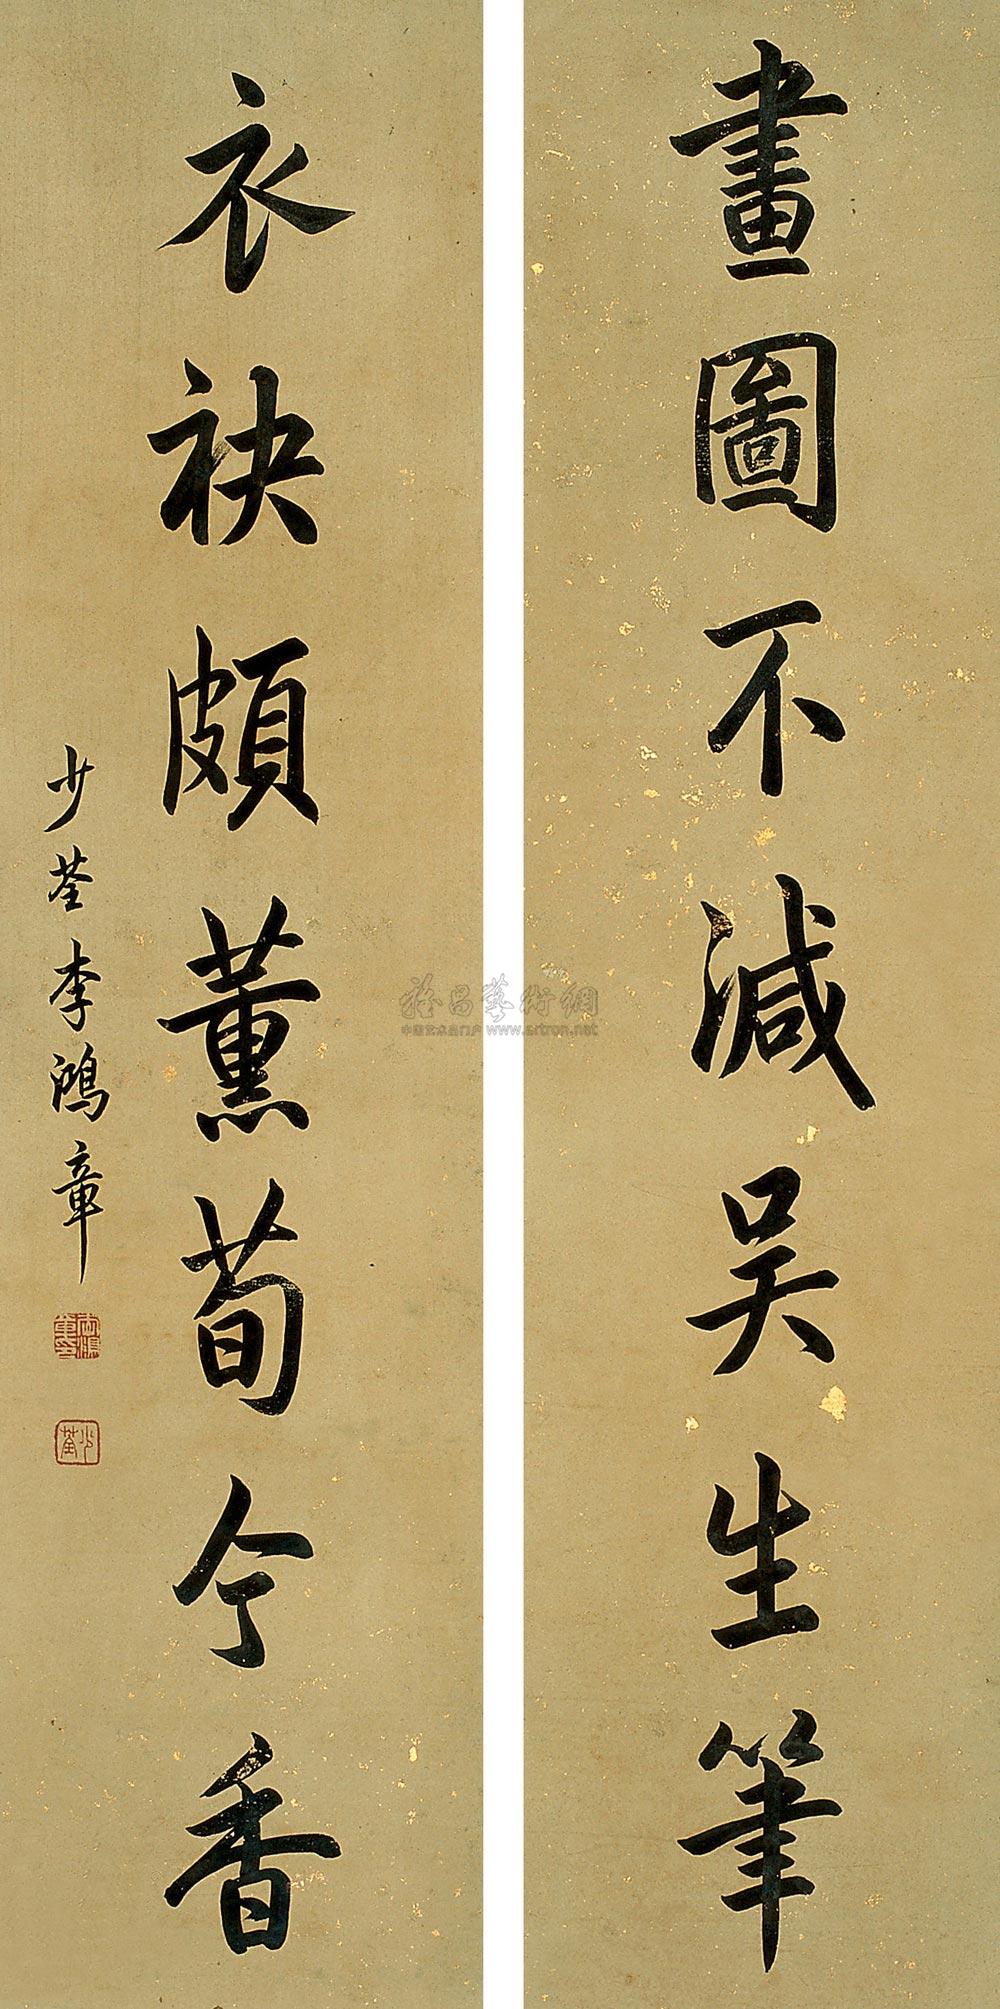 畫圖不減吳生筆
衣袂頗薰荀令香
少荃李鴻章
少荃
雅昌藝術網
中国艺术品门户 www.artron.net